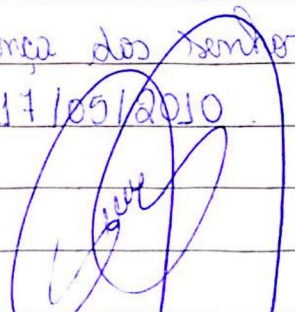 nça dos senhor
17/05/2010.